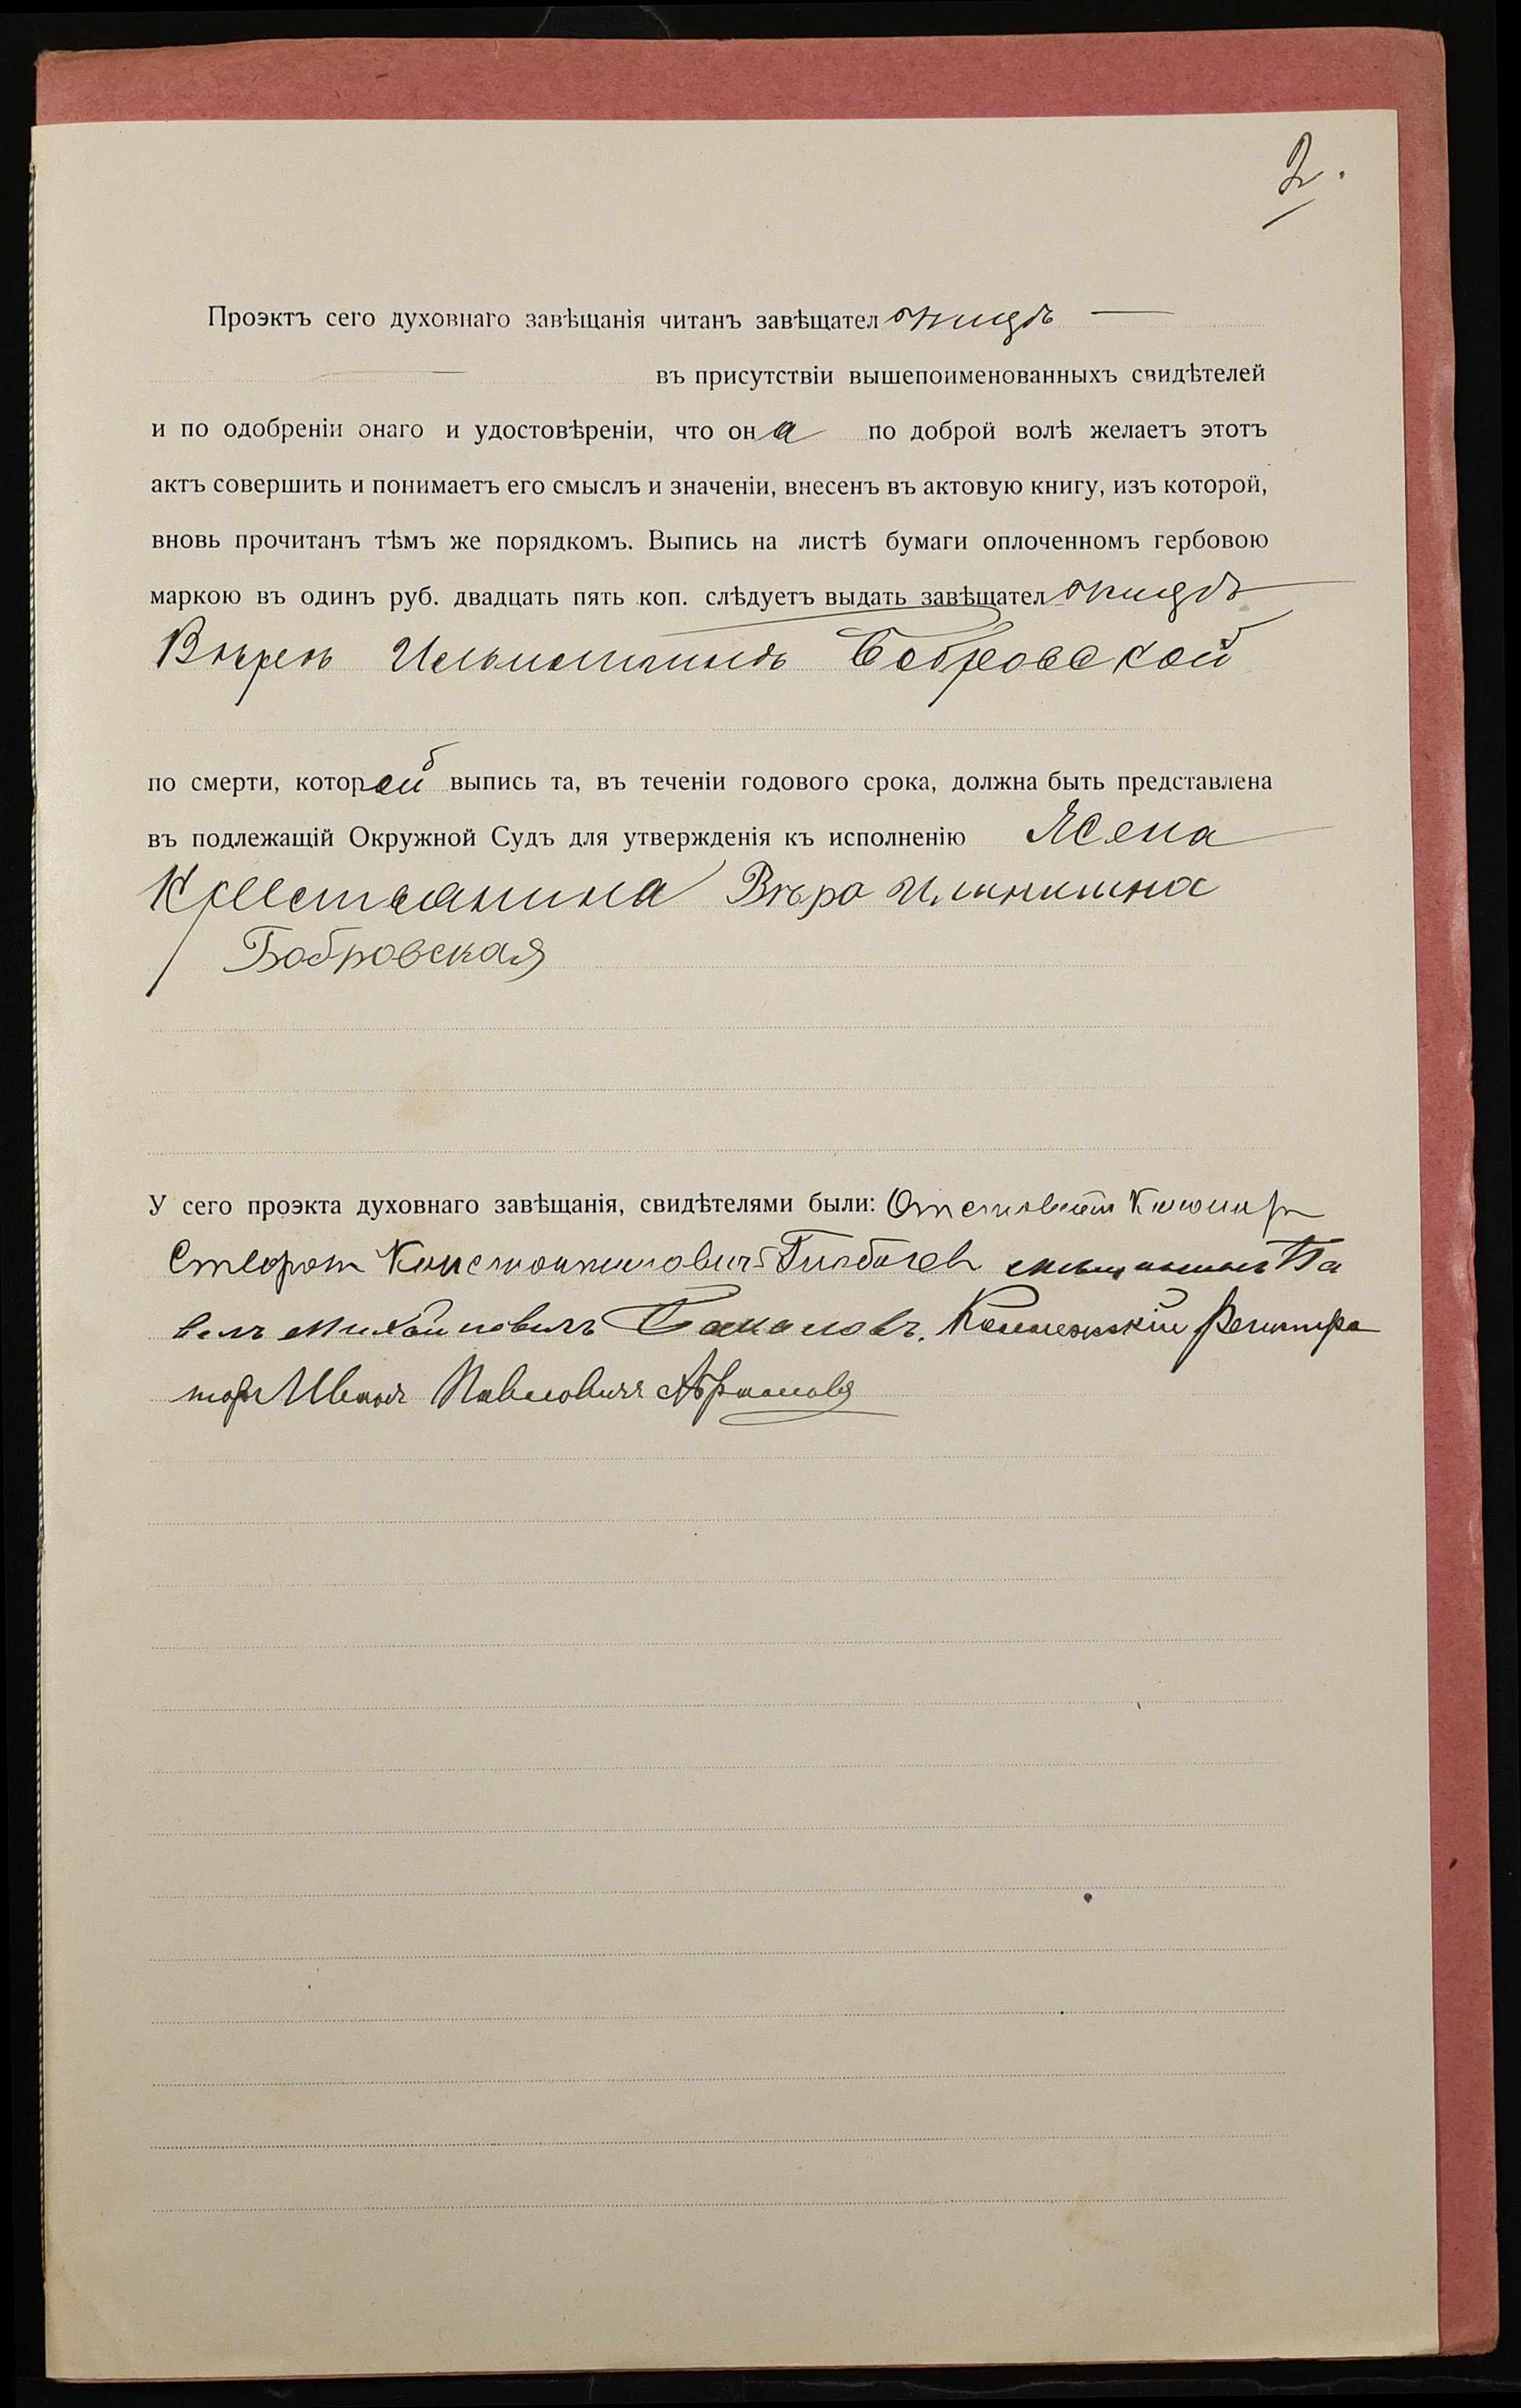 2.
Проэктъ сего духовнаго завѣщанія читанъ завѣщательницѣ
въ присутствіи вышепоименованныхъ свидѣтелей
и по одобреніи онаго и удостовѣреніи, что она по доброй волѣ желаетъ этотъ
актъ совершить и понимаетъ его смыслъ и значеніи, внесенъ въ актовую книгу, изъ которой,
вновь прочитанъ тѣмъ же порядкомъ. Выпись на листѣ бумаги оплоченномъ гербовою
маркою въ одинъ руб. двадцать пять коп. слѣдуетъ выдать завѣщательницѣ
Вѣрѣ Бобровской
по смерти, которой выпись та, въ теченіи годового срока, должна быть представлена
въ подлежащій Окружной Судъ для утвержденія къ исполненію
Вѣра
Бобровская
У сего проэкта духовнаго завѣщанія, свидѣтелями были: Отставной
Константиновичъ мѣщанинъ Па
велъ Михайловичъ Коллежскій Регистра
торъ Иванъ Павловичъ